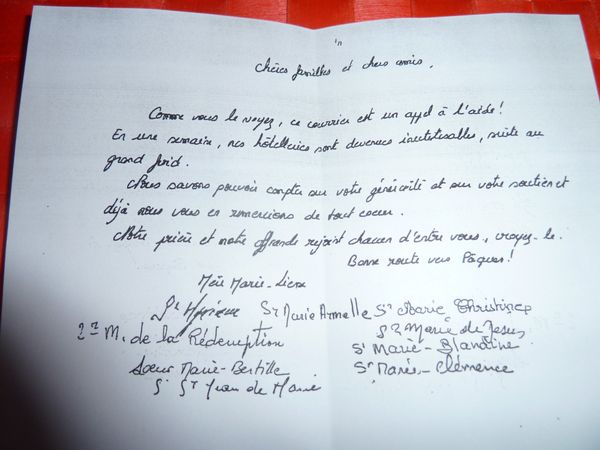 Chères familles et chers amis,
Comme vous le voyez, ce courrier est un appel à l'aide!
En une semaine, nos hôtelleries sont devenues inutilisables, suite au
grand froid.
Nous savons pouvoir compter sur votre générosité et sur votre soutien et
déjà nous vous en remercions de tout coeur.
Notre prière et notre offrande rejoint chacun d'entre vous, croyez-le.
Bonne route vers Pâques!
Mère Marie-
Sr Marie Armelle Sr Marie Christine
M. de la Rédemption
Sr Marie de Jesus
Sr Marie-Blandine
Soeur Marie-Bertille
Sr Marie-Clémence
Sr Jean de Marie